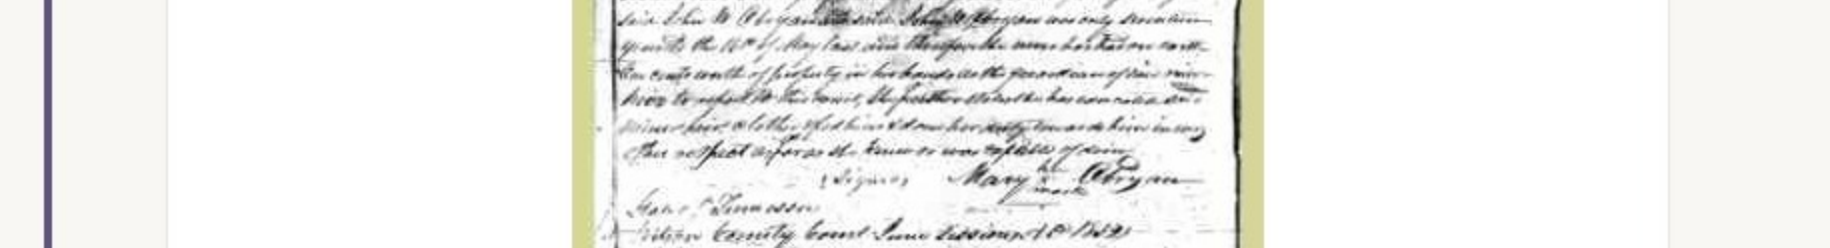 said John W Abryan said John W Abryan was only seventeen
years the 16th of May last and therefore she never has had one
ten cents worth of property in her hands as the guardian of said minor
heir to report to this court, she further states she has said
minor heir clothed fed him & done her duty towards him in every
other respect as far as she knew or was capable of doing
(Signed) Mary her x mark Abryan
State of Tennessee
Wilson County Court June Session AD